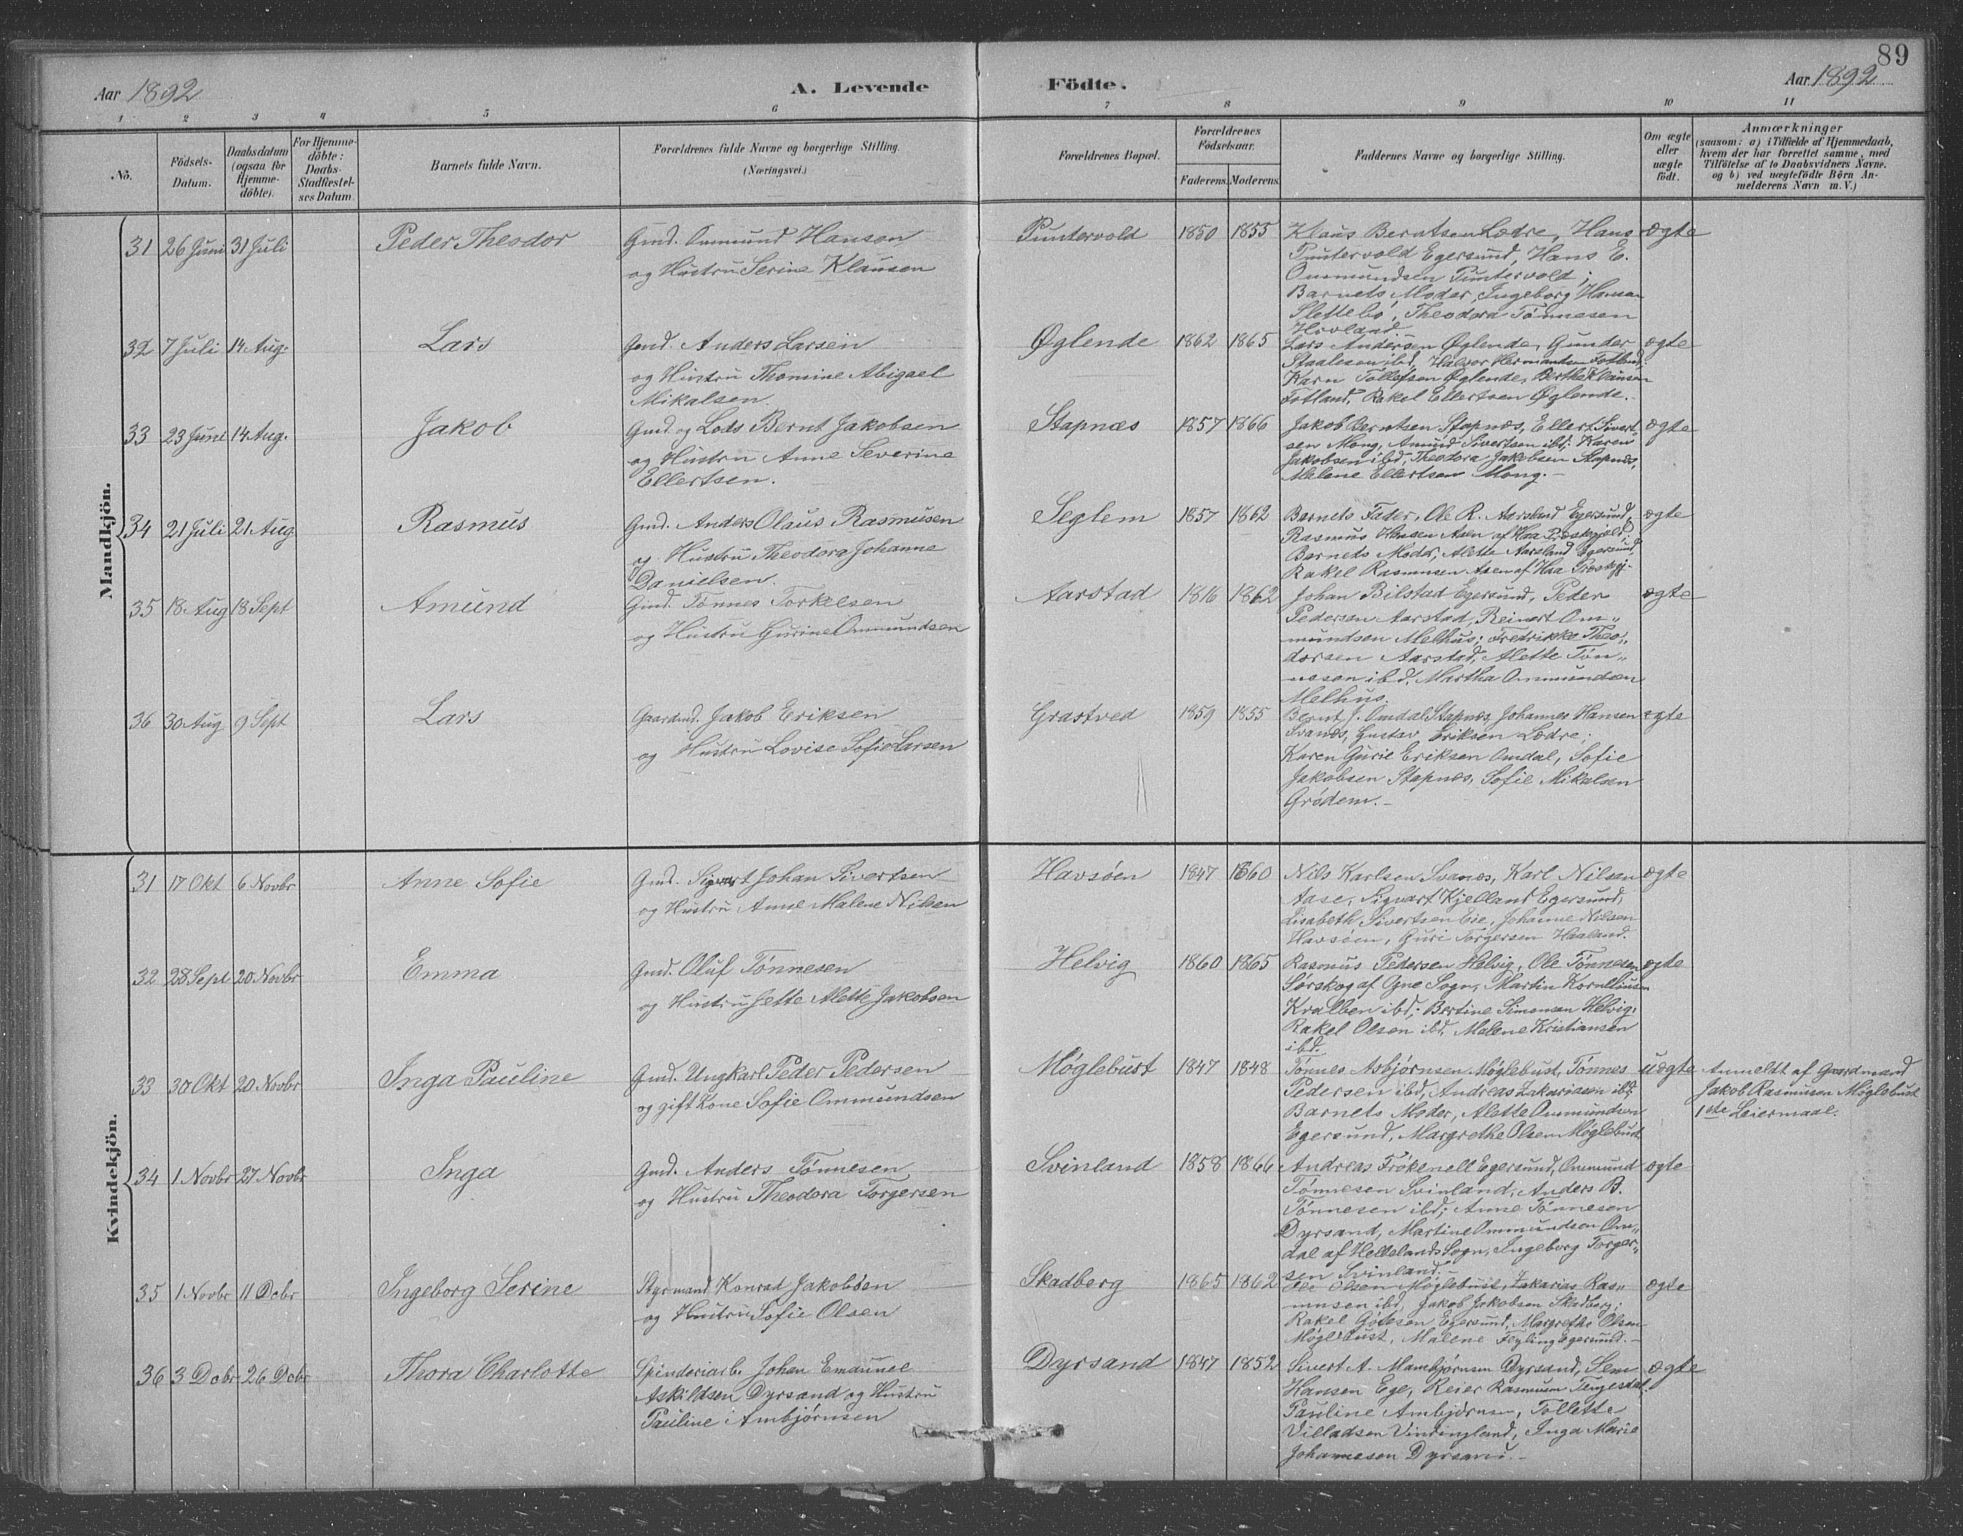 89
Aar 1892
A. Levende Födte.
Aar 1892
1 2 3 4 5 6 7 8 9 10 11
No.
Födsels-Datum.
Daabsdatum (ogsaa for Hjemmedöbte).
For Hjemmedöbte: Daabs-Stadfæstelses Datum.
Barnets fulde Navn.
Forældrenes fulde Navne og borgerlige Stilling. (Næringsvei.)
Forældrenes Bopæl.
Forældrenes Födselsaar.
Faderens. Moderens.
Faddernes Navne og borgerlige Stilling.
Om ægte eller uægte födt.
Anmærkninger
(saasom: a) i Tilfælde af Hjemmedaab, hvem der har forrettet samme, med Tilföielse af to Daabsvidners Navne, og b) ved uægtefödte Börn Anmelderens Navn m. V.)
Mandkjön.
31 26 Juni 31 Juli Peder Theodor
Gmd. Ommund Hansen
og Hustru Serine Klausen
Puntervold 1850 1855
Klaus Berntsen Lædre, Hans
Puntervold Egersund, Hans E.
Ommundsen Puntervold;
Barnets Moder, Ingeborg Hansen
Slettebö, Theodora Tönnesen
Hovland.
ægte
32 7 Juli 14 Aug. Lars
Gmd. Anders Larsen
og Hustru Thomine Abigael
Mikalsen.
Øglende 1862 1865
Lars Andersen Øglende, Gunder
Staalesen ibd, Halvor Hermandsen Fotland;
Karn Tollefsen Øglende, Berthe Klausen
Fotland, Rakel Ellertsen Øglende.
ægte
33 23 Juni 14 Aug. Jakob
Gmd. og Lods Bernt Jakobsen
og Hustru Anne Severine
Ellertsen.
Stapnæs 1857 1866
Jakob Berntsen Stapnæs, Ellert Sivert-
sen Mong, Amund Sivertsen ibd; Karen
Jakobsen ibd, Theodora Jakobsen Stapnæs,
Melene Ellertsen Mong.-
ægte
34 21 Juli 21 Aug Rasmus
Gmd. Anders Olaus Rasmusen
og Hustru Theodora Johanne
Danielsen.
Seglem 1857 1862
Barnets Fader, Ole R. Aarsland Egersund,
Rasmus Hansen Asen af Haa Præstegjeld;
Barnets Moder, Alette Aarsland Egersund,
Rakel Rasmusen Asen af Haa Præstegj.
ægte
35 18 Aug 18 Sept Amund
Gmd. Tönnes Torkelsen
og Hustru Gurine Ommundsen
Aarstad 1816 1862
Johan Bilstad Egersund, Peder
Pedersen Aarstad, Reinert Om-
mundsen Melhus; Fredrikke Theo-
dorsen Aarstad, Alette Tön-
nesen ibd, Martha Ommundsen
Melhus.
ægte
36 30 Aug 9 Sept Lars
Gaardmd. Jakob Eriksen
og Hustru Lovise Sofie Larsen
Grastved 1859 1855
Bernt J. Omdal Stapnæs, Johannes Hansen
Svanæs, Gustav Eriksen Lædre;
Karen Gurie Eriksen Omdal, Sofie
Jakobsen Stapnæs, Sofie Mikalsen
Grödem.-
ægte
Kvindekjön.
31 17 Okt 6 Novbr Anne Sofie
Gmd. Sigvart Johan Sivertsen
og Hustru Anne Malene Nilsen
Havsöen 1847 1860
Nils Karlsen Svanæs, Karl Nilsen
Aase, Sigvart Kjelland Egersund,
Lisabeth Sivertsen Eie, Johanne Nilsen
Havsöen, Guri Torgersen Haaland.
ægte
32 28 Sept 20 Novbr Emma
Gmd. Oluf Tönnesen
og Hustru Jette Alette Jakobsen
Helvig 1860 1865
Rasmus Pedersen Helvig, Ole Tönnesen
Sörskog af Ogne Sogn, Martin Korneliusen
Kralben ibd; Bertine Simonsen Helvig,
Rakel Olsen ibd, Malene Kristiansen
ibd.
ægte
33 30 Okt 20 Novbr Inga Pauline
Gmd. Ungkarl Peder Pedersen
og gift Kone Sofie Ommundsen
Möglebust 1847 1848
Tönnes Asbjörnsen Möglebust, Tönnes
Pedersen ibd, Andreas Zakariasen ibd;
Barnets Moder, Alette Ommundsen
Egersund, Margrethe Olsen Möglebust
uægte
Anmeldt af Gaardmand
Jakob Rasmusen Möglebust
1ste Leiermaal.
34 1 Novbr 27 Novbr Inga
Gmd. Anders Tönnesen
og Hustru Theodora Torgersen
Svinland 1858 1866
Andreas Frökenell Egersund, Ommund
Tönnesen Svinland, Anders B.
Tönnesen ibd; Anne Tönnesen
Dyrsand, Martine Ommundsen Om-
dal af Hellelands Sogn, Ingeborg Torger-
sen Svinland.-
ægte
35 1 Novbr 11 Decbr Ingeborg Serine
Styrmand Konrad Jakobsen
og Hustru Sofie Olsen
Skadberg 1865 1862
Ole Olsen Möglebust, Zakarias Ras-
musen ibd, Jakob Jakobsen Skadberg;
Rakel Gotesen Egersund, Margrethe Olsen
Möglebust, Malene Feyling Egersund.-
ægte
36 3 Decbr 26 Decbr Thora Charlotte
Spinderiarb. Johan Emanuel
Askildsen Dyrsand og Hustru
Pauline Ambjörnsen
Dyrsand 1847 1852
Sivert A. Mambjörnsen Dyrsand, Sem
Hansen Ege, Reier Rasmusen Tengesdal;
Pauline Ambjörnsen, Tollette
Villadsen Vindingland, Inga Marie
Johannesen Dyrsand.-
ægte